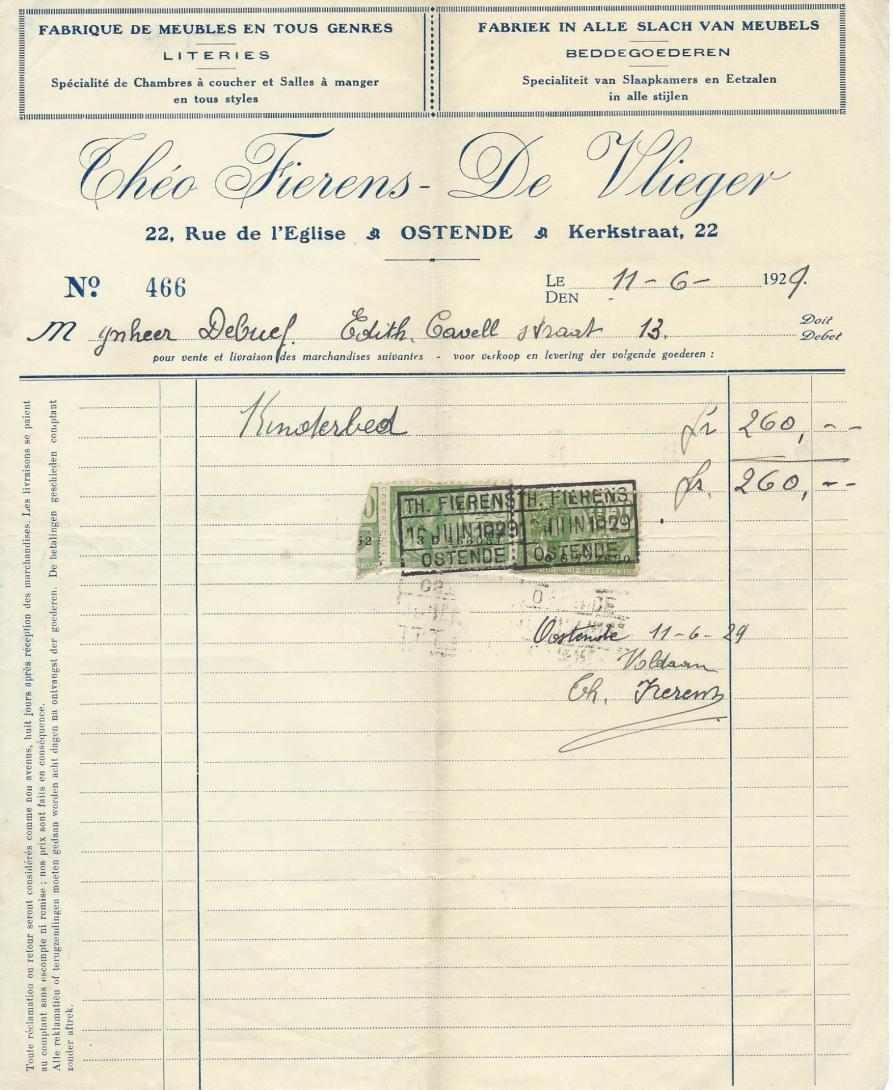 FABRIQUE DE MEUBLES EN TOUS GENRES
LITERIES
Spécialité de Chambres à coucher et Salles à manger
en tous styles
FABRIEK IN ALLE SLACH VAN MEUBELS
BEDDEGOEDEREN
Specialiteit van Slaapkamers en Eetzalen
in alle stijlen
Théo Fierens-De Vlieger
22, Rue de l'Eglise OSTENDE Kerkstraat, 22
Nº 466
LE DEN 11-6- 1929.
Mynheer Debuef. Edith. Cavell straat 13. Doit Debet
pour vente et livraison des marchandises suivantes - voor verkoop en levering der volgende goederen :
Kinderbed fr 260, --
fr. 260, --
TH. FIERENS TH. FIERENS
15 JUIN 1929 15 JUIN 1929
OSTENDE OSTENDE
Oostende 11-6-29
Voldaan
Th. Fierens
Toute réclamation ou retour seront considérés comme non avenus, huit jours après réception des marchandises. Les livraisons se paient
au comptant sans escompte ni remise ; nos prix sont faits en conséquence.
Alle reklamatiën of terugzendingen moeten gedaan worden acht dagen na ontvangst der goederen. De betalingen geschieden comptant
zonder aftrek.